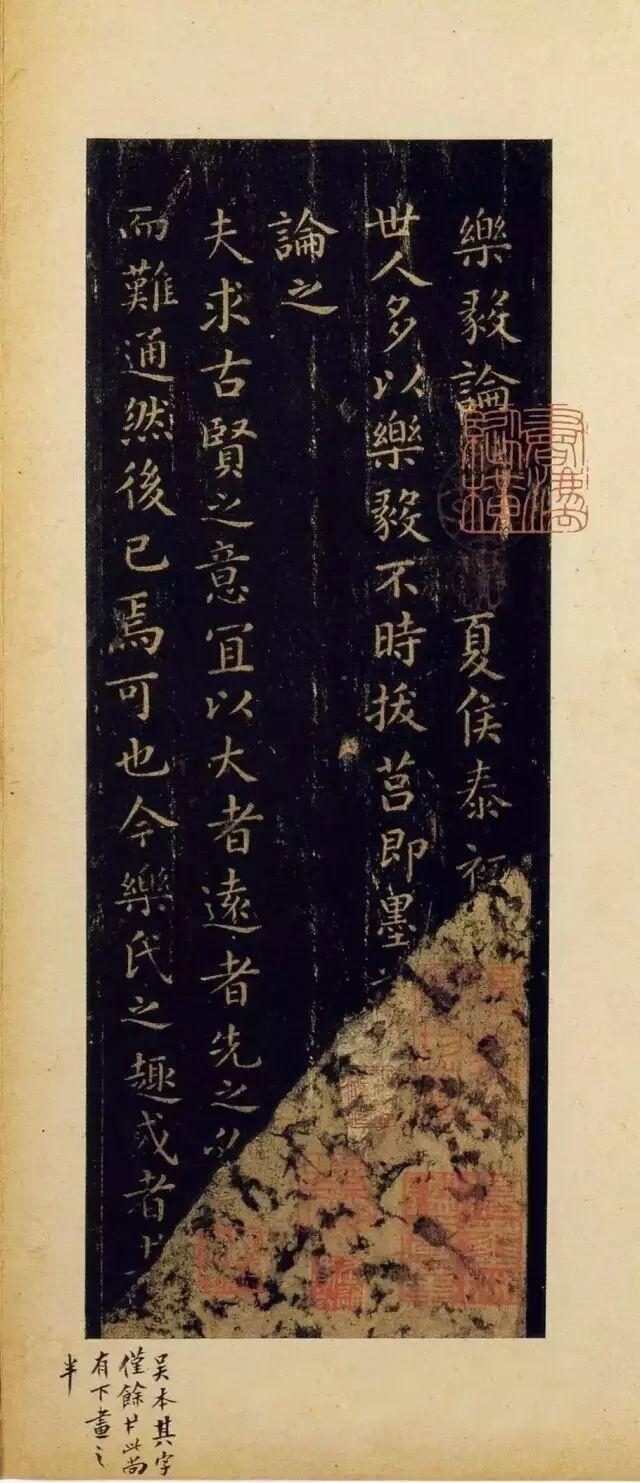 樂毅論 夏侯泰初
世人多以樂毅不時拔莒即墨
論之
夫求古賢之意宜以大者遠者先之
而難通然後已焉可也今樂氏之趣或者
吴本其字
僅餘此尚
有下畫之
半